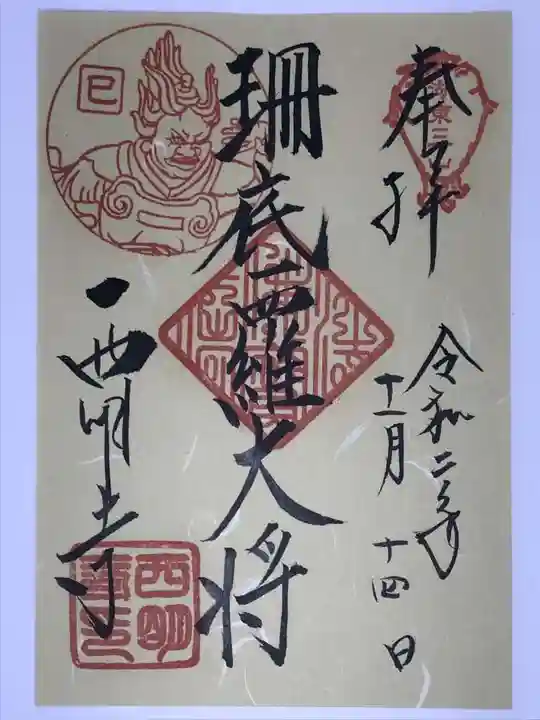 奉拝
湖東三山
令和二年
十一月十四日
珊底羅大将
巳
西明寺
西明